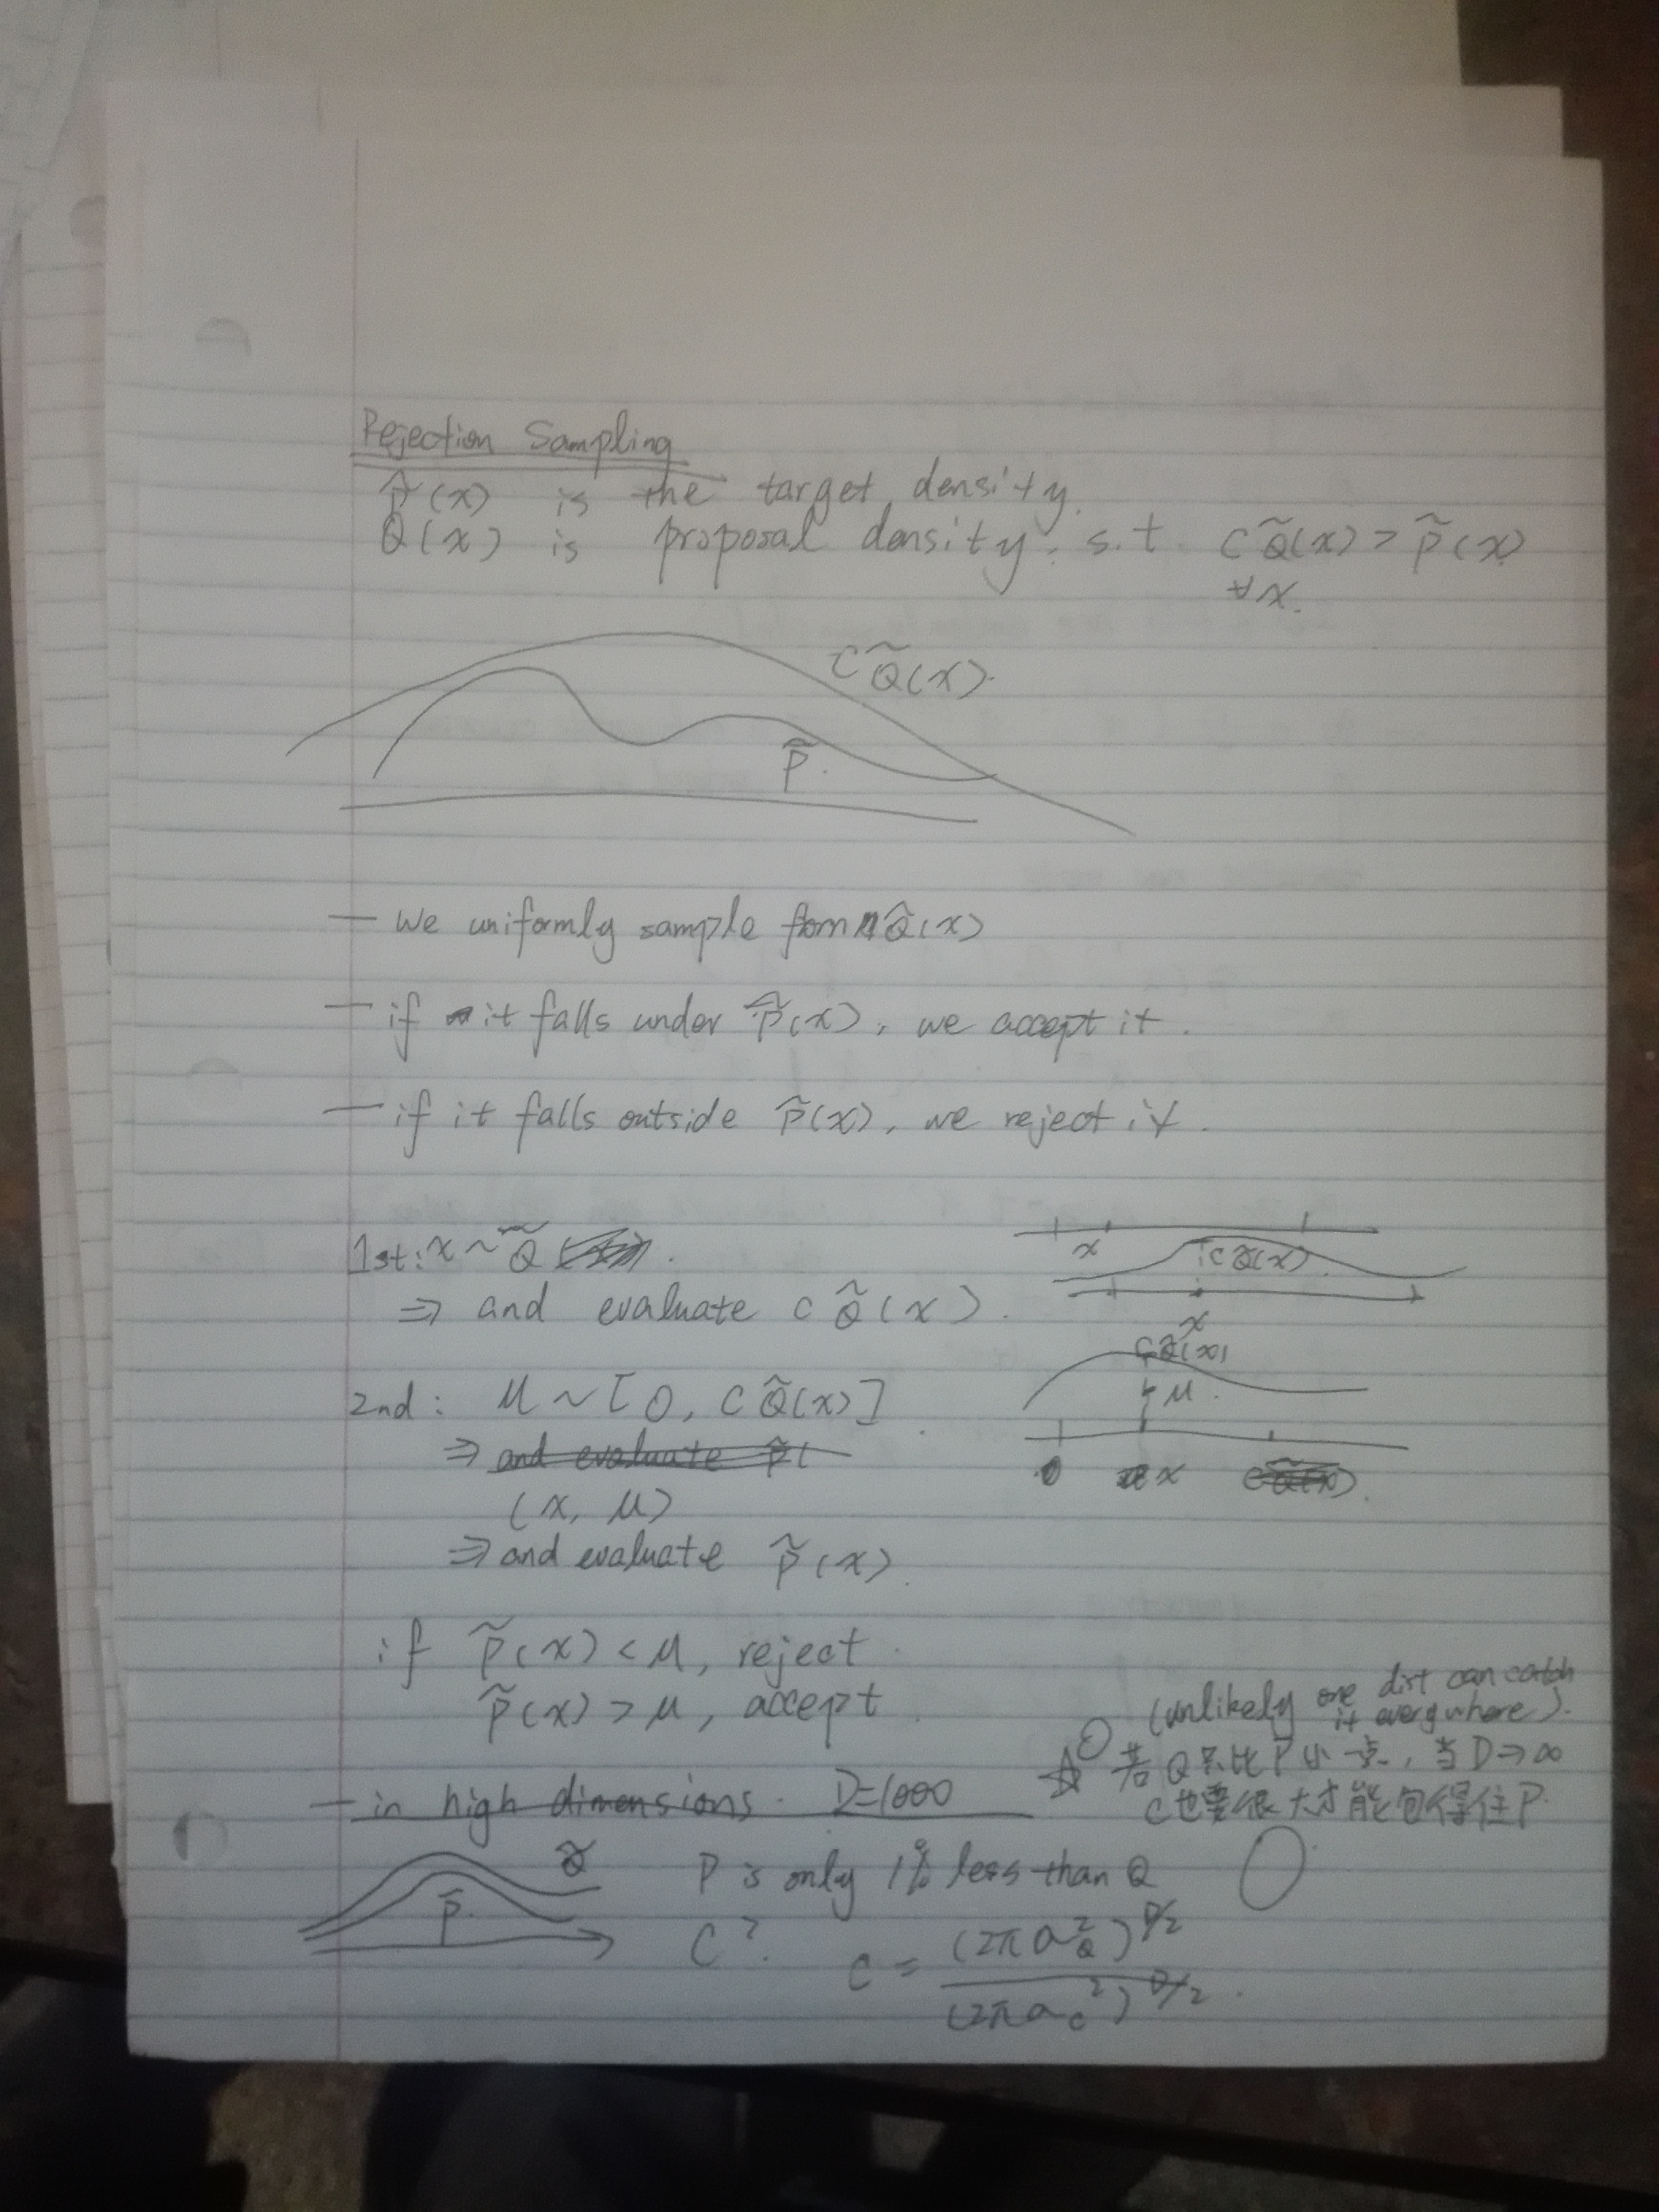 Rejection Sampling
P̃(x) is the target density.
Q(x) is proposal density, s.t. CQ̃(x) > P̃(x)
∀x.
CQ̃(x).
P̃.
— We uniformly sample from Q̃(x)
— if it falls under P̃(x), we accept it.
— if it falls outside P̃(x), we reject it.
1st: x ~ Q̃
x
CQ̃(x).
⇒ and evaluate CQ̃(x).
x
CQ̃(x)
2nd: μ ~ [0, CQ̃(x)]
μ.
⇒ and evaluate P̃(
0 x CQ̃(x).
(x, μ)
⇒ and evaluate P̃(x).
if P̃(x) < μ, reject.
P̃(x) > μ, accept.
(unlikely one dist can catch
it everywhere).
若Q只比P小一点, 当D→∞
C也要很大才能包得住P.
— in high dimensions. D=1000
Q̃
P̃.
P is only 1% less than Q
C?
C = (2πσ_Q²)^{D/2}
(2πσ_c²)^{D/2}.